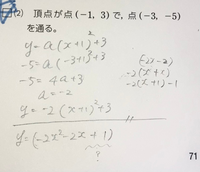 (2) 頂点が点(-1, 3)で, 点(-3, -5)
を通る。
y = a(x+1)²+3
-5 = a(-3+1)²+3
-5 = 4a+3
a = -2
y = -2(x+1)²+3
y = (-2x²-2x+1)
?
-2(x+1)
-2(x+1)-1
71